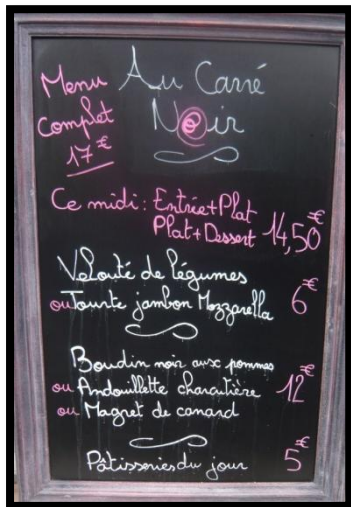 Au Carré
Noir
Menu
Complet
17€
Ce midi : Entrée+Plat
Plat+Dessert 14,50€
Velouté de légumes
ou Tourte jambon Mozzarella 6€
Boudin noir aux pommes
ou Andouillette charcutière 12€
ou Magret de canard
Pâtisseries du jour 5€